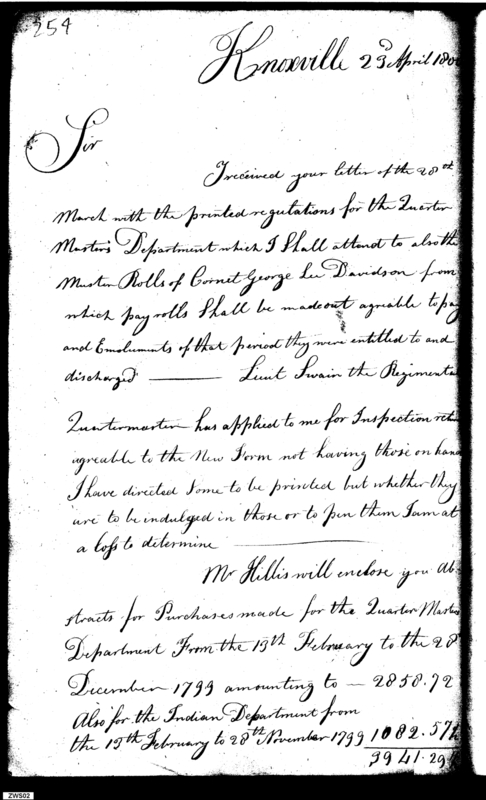 254
Knoxville 23d April 180
Sir
I received your letter of the 28th
March with the printed regulations for the Quarter
Masters Department which I Shall attend to also the
Muster Rolls of Cornet George Lee Davidson from
which pay rolls Shall be made out agreable to pay
and Emoluments of that period they were entitled to and
discharged ——— Lieut Swain the Regimenta
Quartermaster has applied to me for Inspection
agreable to the New Form not having those on hand
I have directed Some to be printed but whether they
are to be indulged in those or to pen them I am at
a loss to determine ———
Mr Hillis will enclose you Ab-
stracts for Purchases made for the Quarter Masters
Department From the 13th February to the 28
December 1799 amounting to — 2858.72
Also for the Indian Department from
the 13th February to 28th November 1799 1082.57½
3941.29½
ZWS02